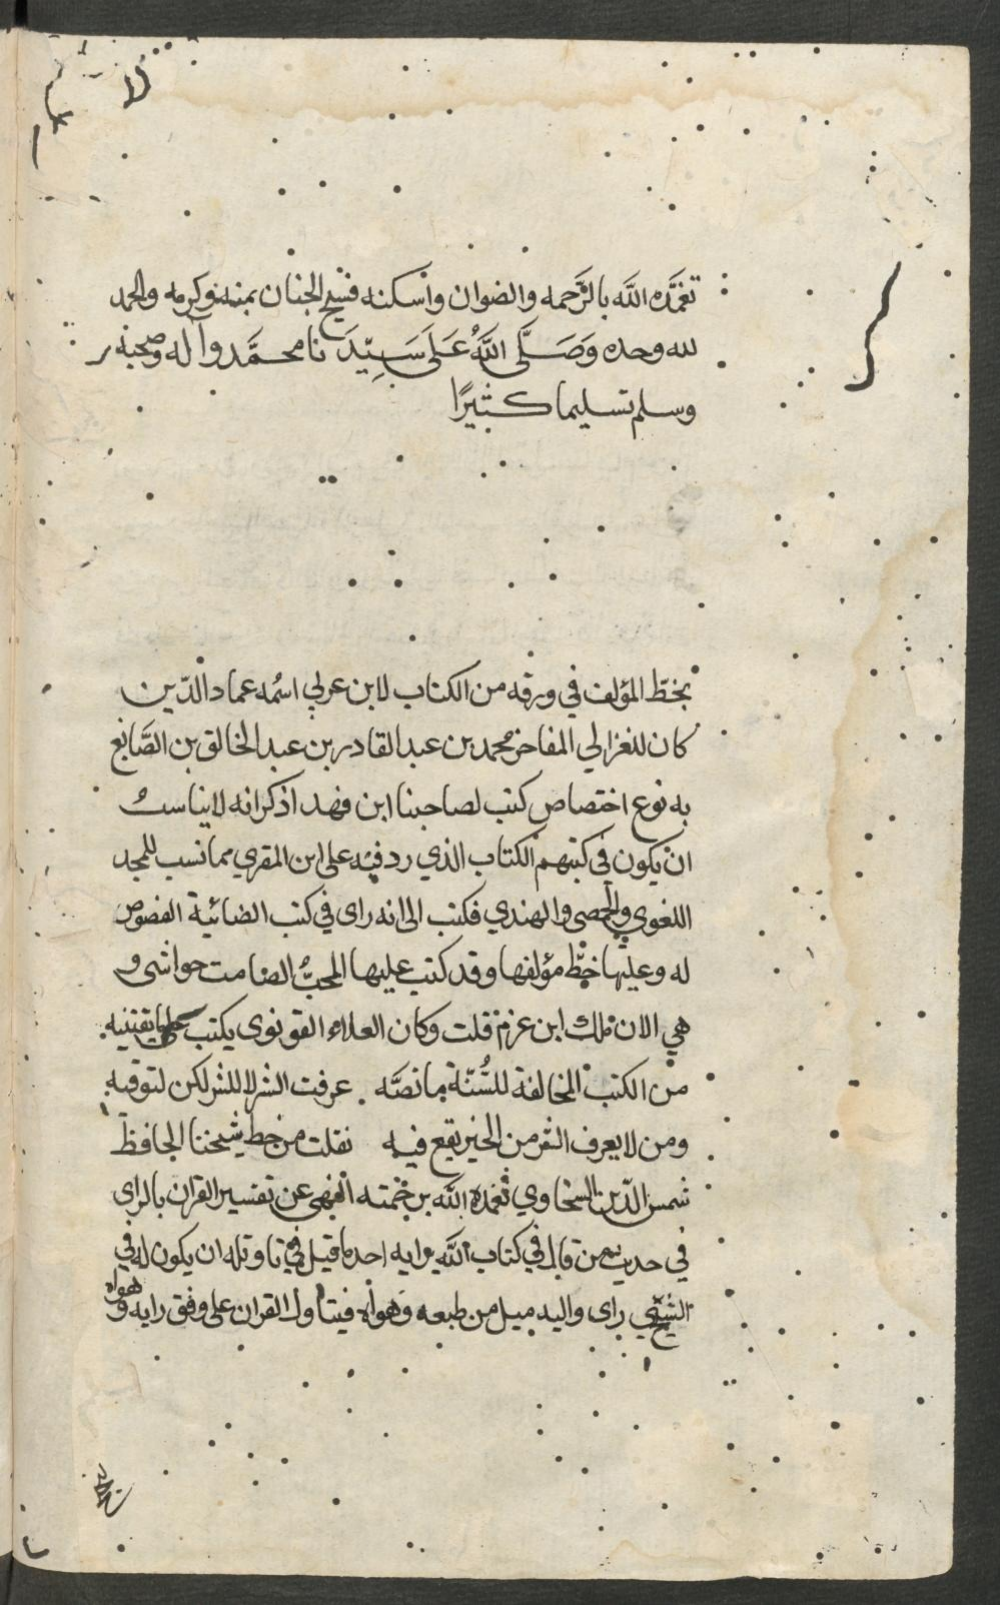 تغمَّده الله بالرَّحمه والضوان وأسكنه فسيح الجنان بمنه وكرمه والحمد
لله وحده وَصَلَّى اللَّهُ عَلَى سَيِّدَ نا محمَّد وآله وصحبه
وسلم تسليما كثيرًا
بخطّ المؤلف في ورقه من الكتاب لابن عربي اسمُه عماد الدّين
كان للغزالي المفاخر محمد بن عبد القادر بن عبد الخالق بن الصَّايغ
به نوع اختصاص كتب لصاحبنا ابن فهد اذكرانه لايناسب
ان يكون في كتبهم الكتاب الذي رد فيه على ابن المقري مما نسب للمجد
اللغوي والحصى والهندي فكتب الى انه راى في كتب الضائية الفصوص
له وعليها خطّ مؤلفها وقد كتب عليها المحبُّ الصامت حواشى و
هي الان ملك ابن عزم قلت وكان العلاء القونوى يكتب على ما يقتنيه
من الكتب المخالفة للسُّنّة ما نصَّه عرفت الشر لا للشر لكن لتوقيه
ومن لا يعرف الشر من الخير يقع فيه نقلت من خط شيخنا الحافظ
شمس الدّين السخاوي تغمده الله برحمته النهى عن تفسير القران بالراى
في حديث من قال في كتاب الله برايه احد ما قيل في تاوتله ان يكون له في
الشيى راى واليه ميل من طبعه وهواه فيتاول القران على وفق رايه وهواه